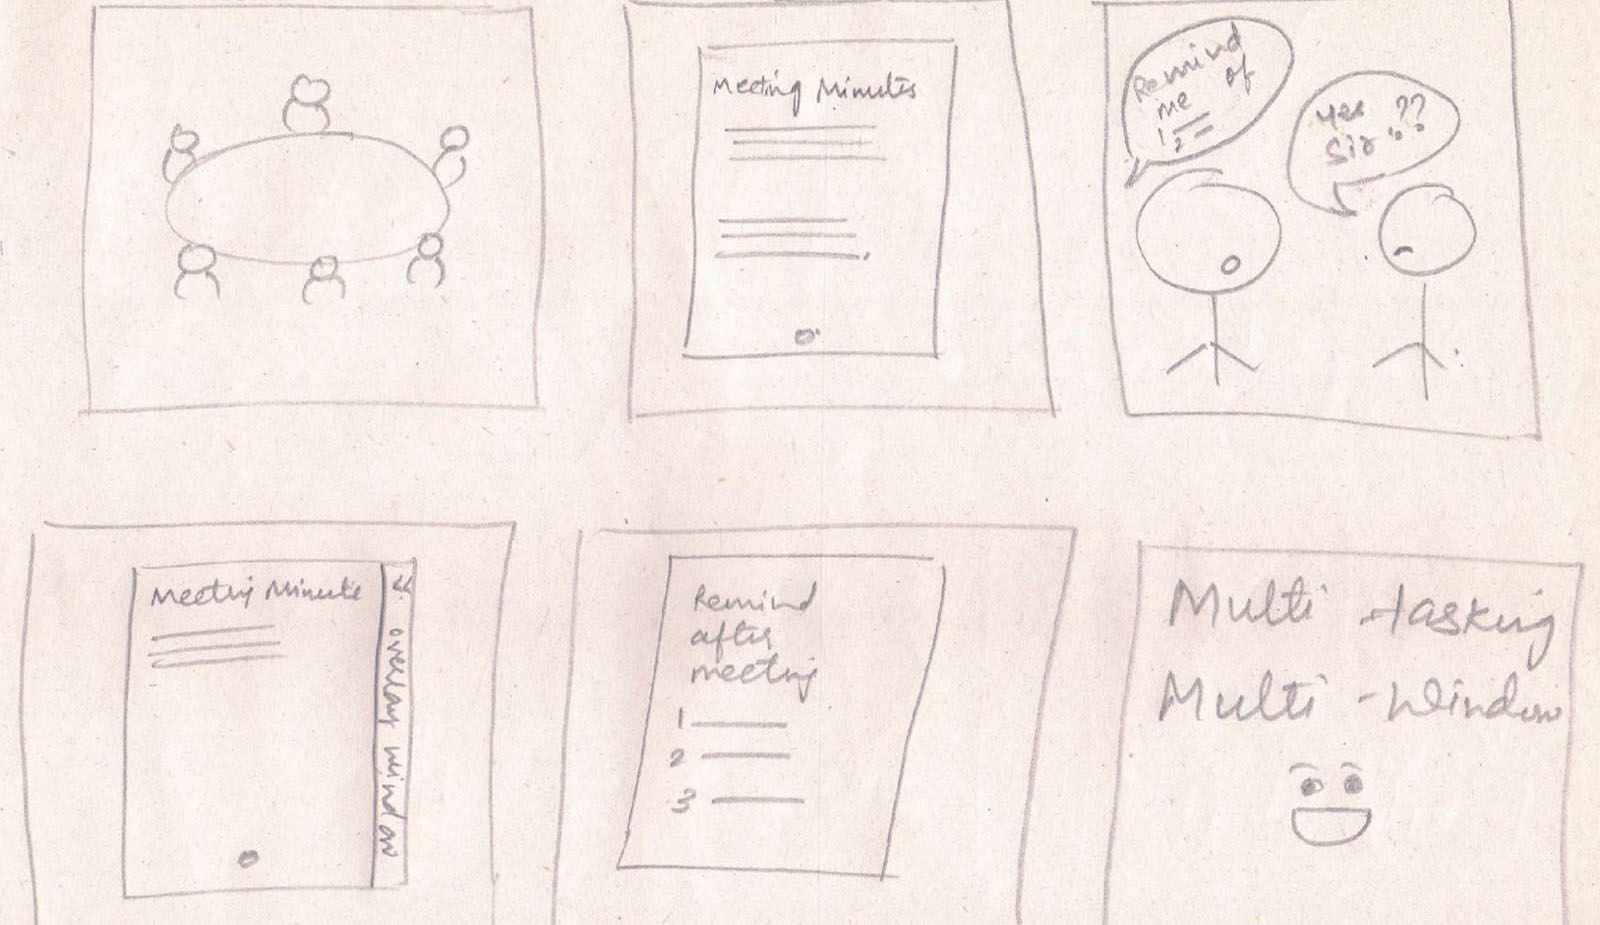 Meeting Minutes
Remind
me of
1
2
Yes ??
Sir
Meeting Minute
<<
overlay window
Remind
after
meeting
1
2
3
Multi-tasking
Multi-window